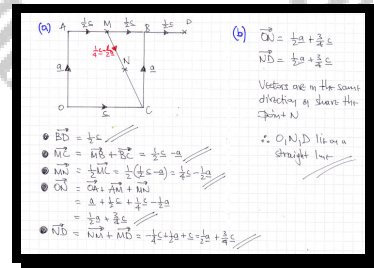 (a) A ½c M ½c B ½c D
¼c-½a
N
a a
O c C
BD = ½c
MC = MB + BC = ½c - a
MN = ½MC = ½(½c - a) = ¼c - ½a
ON = OA + AM + MN
= a + ½c + ¼c - ½a
= ½a + ¾c
ND = NM + MD = -¼c + ½a + c = ½a + ¾c
(b) ON = ½a + ¾c
ND = ½a + ¾c
Vectors are in the same
direction & share the
point N
∴ O, N, D lie on a
straight line